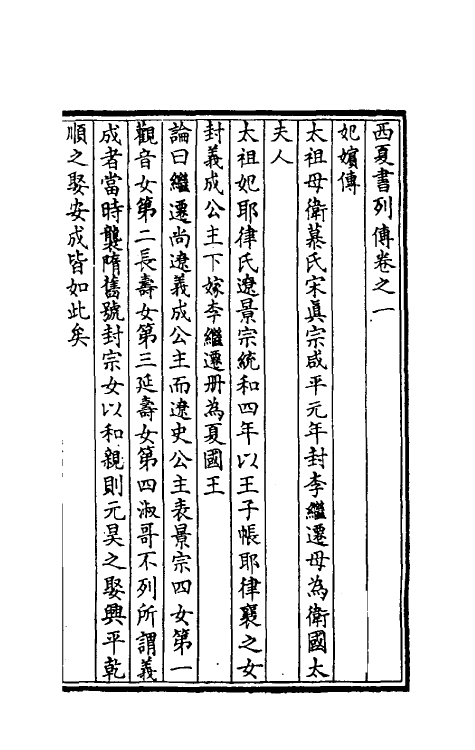 西夏書列傳卷之一
妃嬪傳
太祖母衛慕氏宋眞宗咸平元年封李繼遷母為衛國太
夫人
太祖妃耶律氏遼景宗統和四年以王子帳耶律襄之女
封義成公主下嫁李繼遷册為夏國王
論曰繼遷尚遼義成公主而遼史公主表景宗四女第一
觀音女第二長壽女第三延壽女第四淑哥不列所謂義
成者當時襲隋舊號封宗女以和親則元昊之娶興平乾
順之娶安成皆如此矣